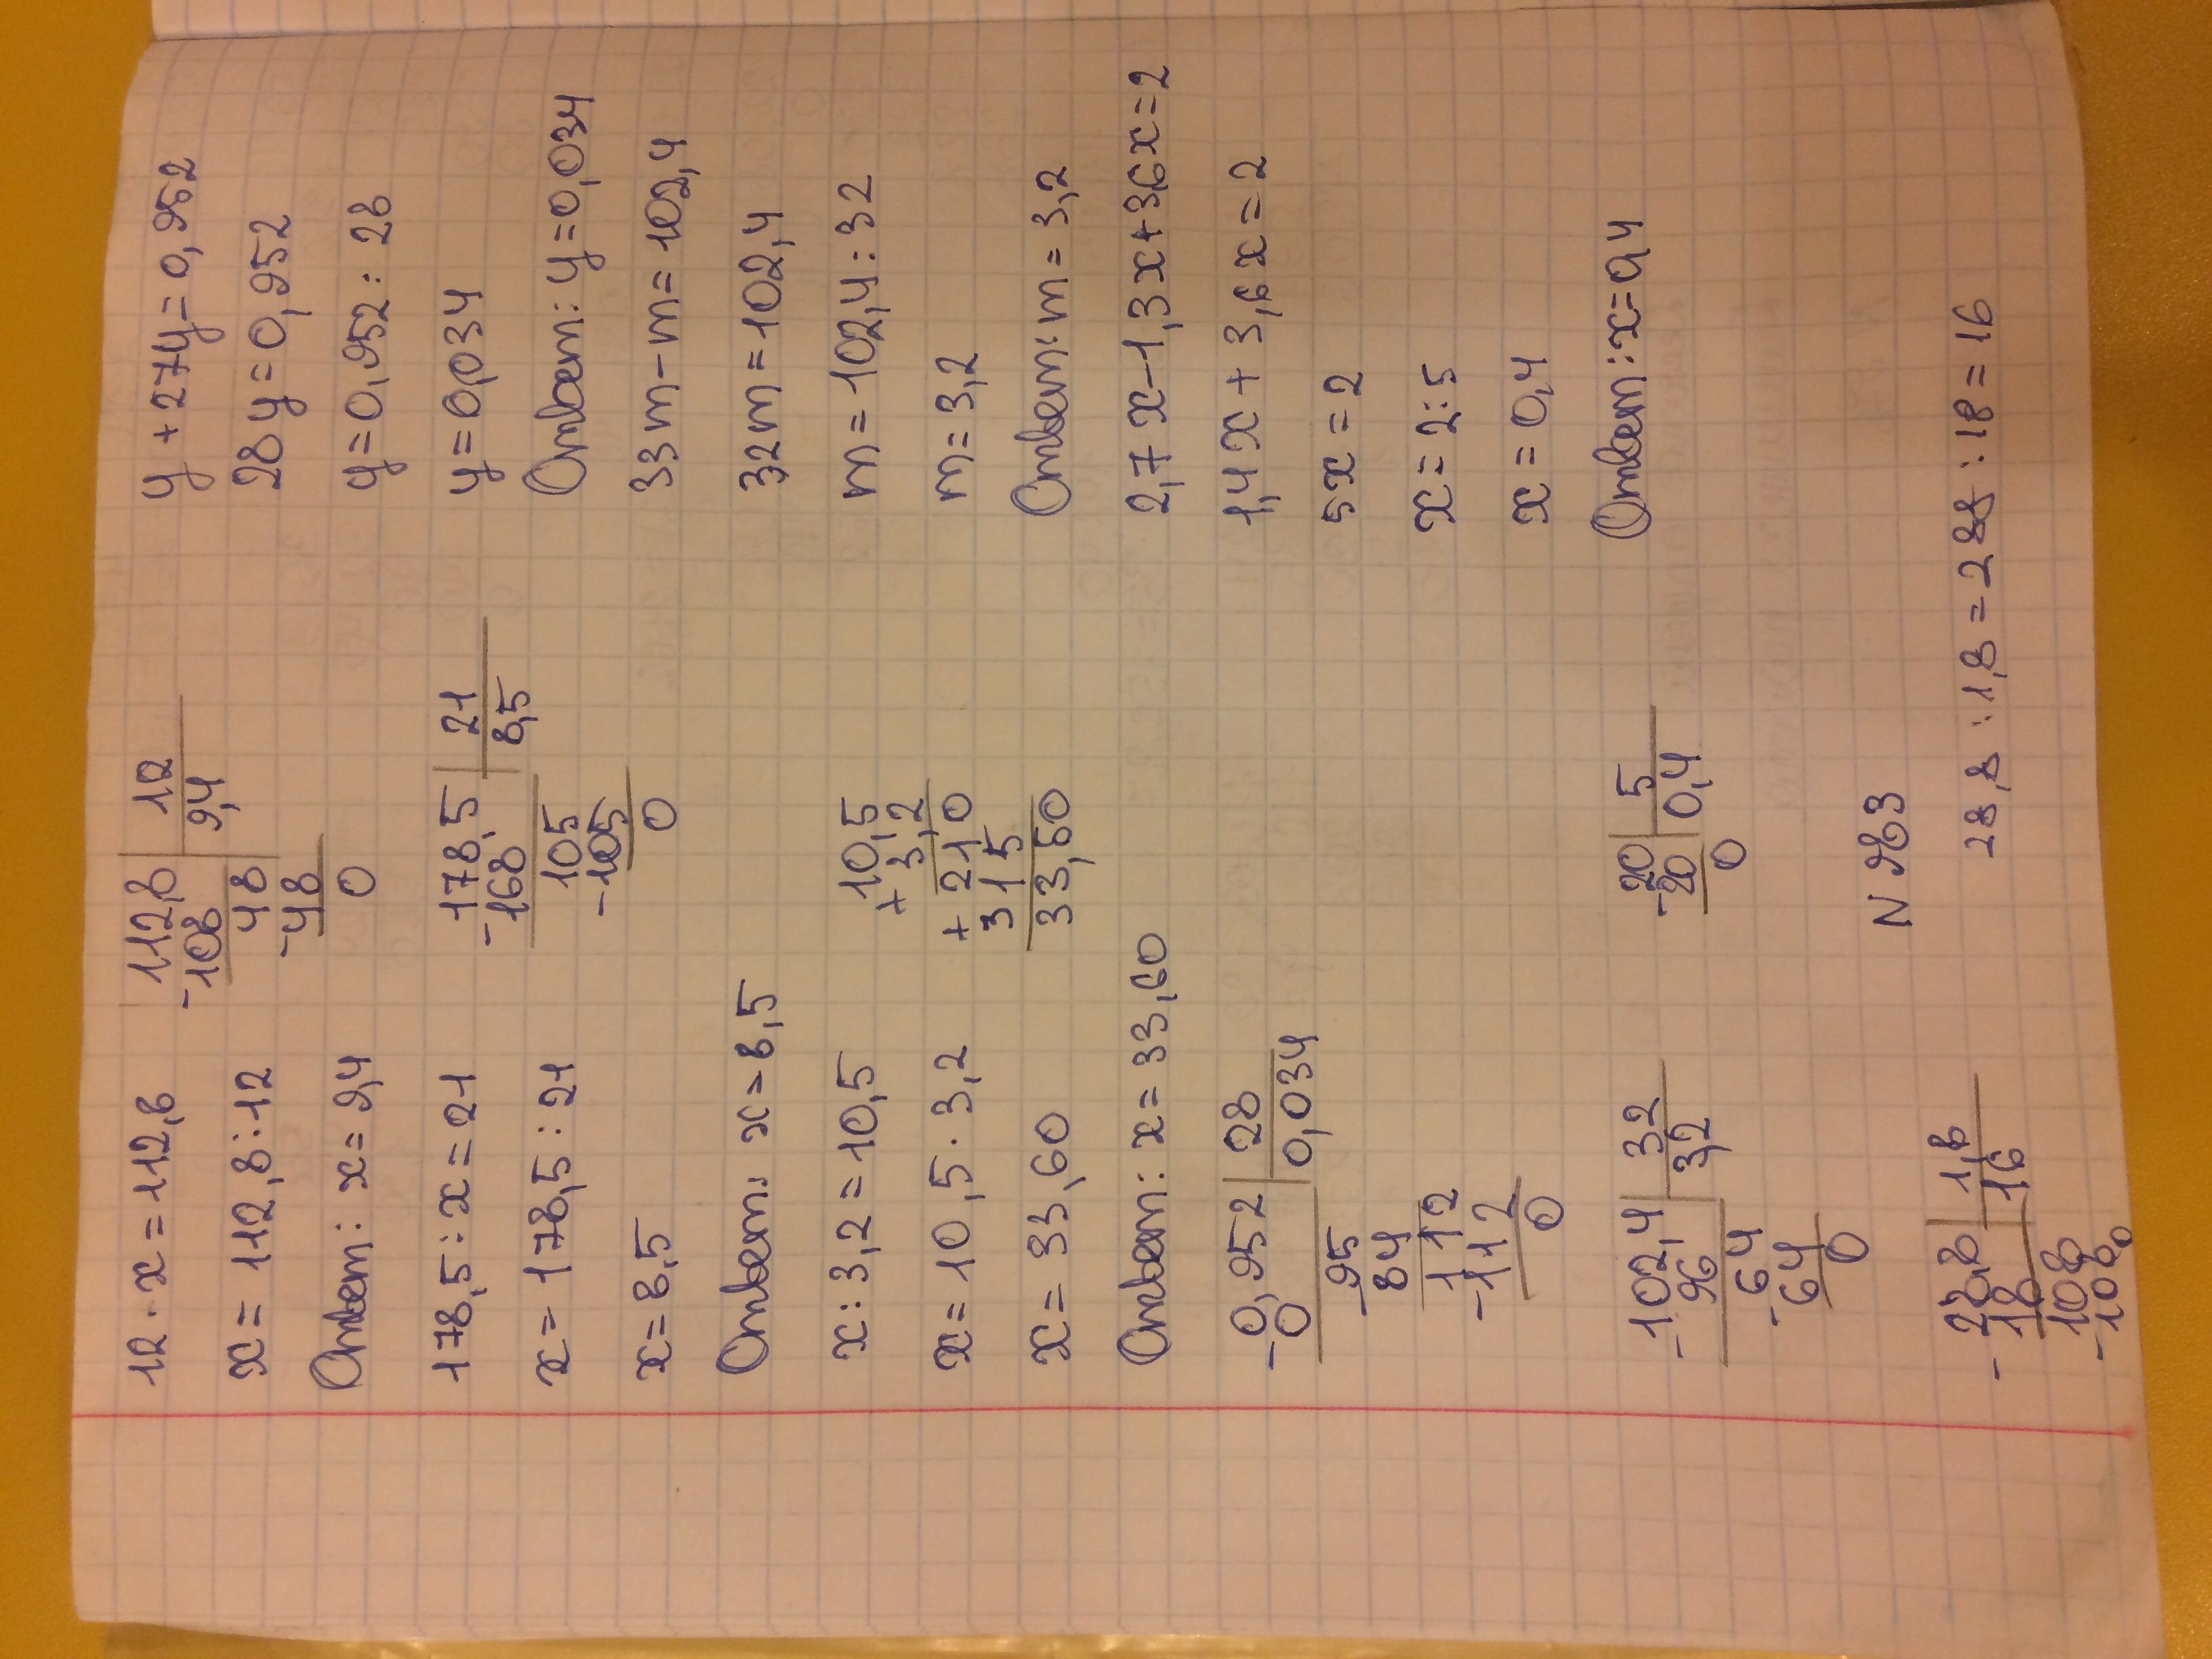 12 · x = 112,8
x = 112,8 : 12
Ответ: x = 9,4
112,8 | 12
-108 | 9,4
48
-48
0
178,5 : x = 21
x = 178,5 : 21
x = 8,5
Ответ: x = 8,5
178,5 | 21
-168 | 8,5
105
-105
0
x : 3,2 = 10,5
x = 10,5 · 3,2
x = 33,60
Ответ: x = 33,60
10,5
+ 3,2
+ 210
315
33,60
0,952 | 28
-0 | 0,034
95
-84
112
-112
0
102,4 | 32
-96 | 3,2
64
-64
0
20 | 5
-20 | 0,4
0
y + 27y = 0,952
28y = 0,952
y = 0,952 : 28
y = 0,034
Ответ: y = 0,034
33m - m = 102,4
32m = 102,4
m = 102,4 : 32
m = 3,2
Ответ: m = 3,2
2,7x - 1,3x + 3,6x = 2
1,4x + 3,6x = 2
5x = 2
x = 2 : 5
x = 0,4
Ответ: x = 0,4
N 983
28,8 | 1,8
-18 | 16
108
-108
0
28,8 : 1,8 = 288 : 18 = 16